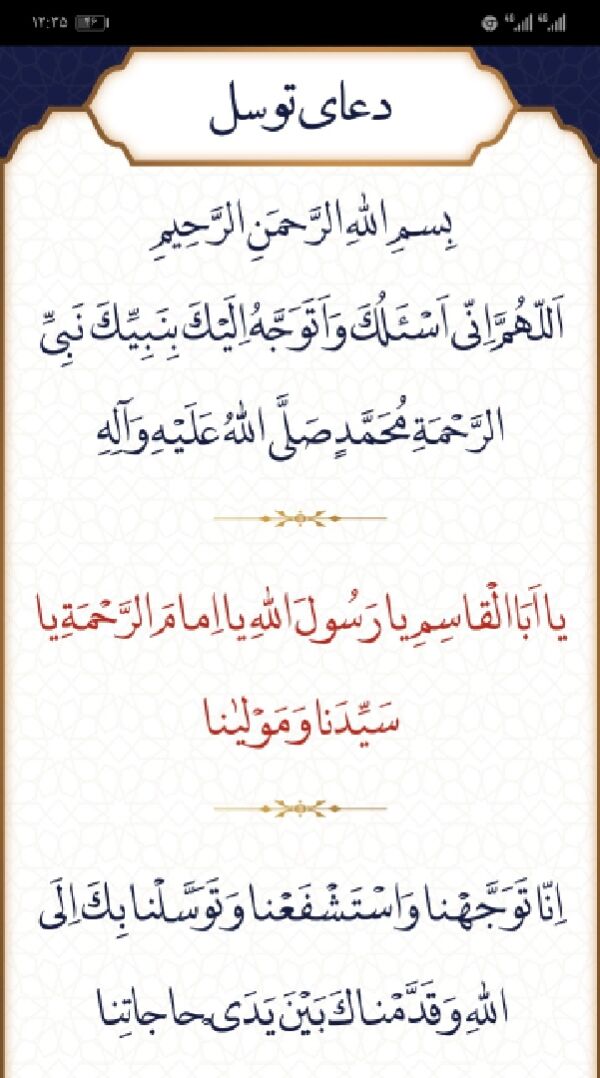 ۱۲:۳۵ ۴۶
دعای توسل
بِسمِ اللهِ الرَّحمَنِ الرَّحِیمِ
اَللّهُمَّ اِنّی اَسْئَلُکَ وَ اَتَوَجَّهُ اِلَیْکَ بِنَبِیِّکَ نَبِیِّ
الرَّحْمَةِ مُحَمَّدٍ صَلَّی اللهُ عَلَیْهِ وَ آلِهِ
یا اَبَا الْقاسِمِ یا رَسُولَ اللهِ یا اِمامَ الرَّحْمَةِ یا
سَیِّدَنا وَ مَوْلیٰنا
اِنّا تَوَجَّهْنا وَ اسْتَشْفَعْنا وَ تَوَسَّلْنا بِکَ اِلَی
اللهِ وَ قَدَّمْناکَ بَیْنَ یَدَیْ حاجاتِنا